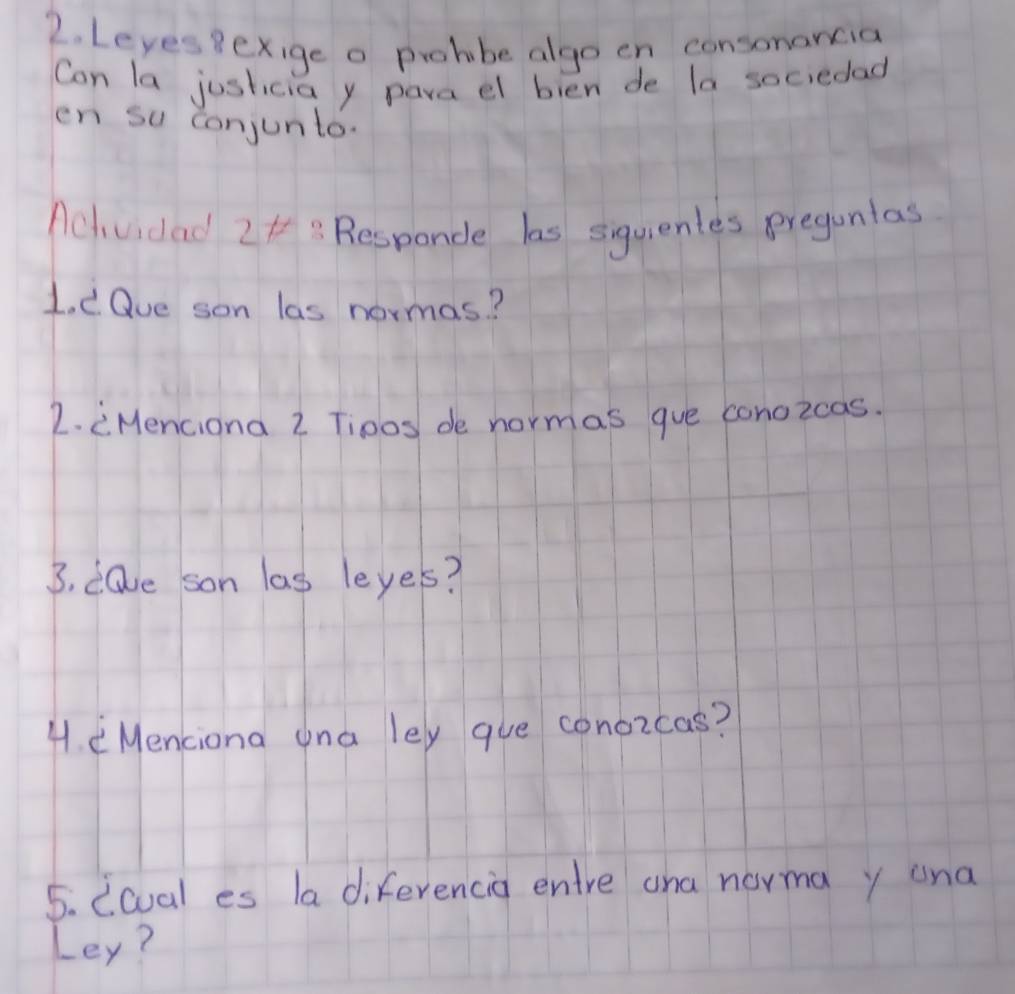 2. Leyes: exige o prohibe algo en consonancia
Con la justicia y para el bien de la sociedad
en su conjunto.
Actividad 2# : Responde las siguientes preguntas
1. ¿Que son las normas?
2. ¿Menciona 2 Tipos de normas que conozcas.
3. ¿Que son las leyes?
4. ¿Menciona una ley que conozcas?
5. ¿Cual es la diferencia entre una norma y una
Ley?